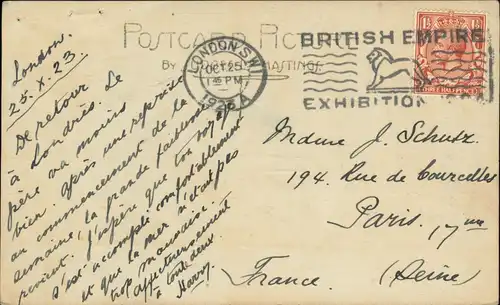 POSTCARD PICTURE
BY JUDGES, HASTINGS
LONDON.S.W.1
OCT 25
PM
1923 A
BRITISH EMPIRE
EXHIBITION
THREE HALFPENCE
London.
25. X. 23.
De retour de
à Londres. Le
père va moins
bien. Après une reprise
au commencement de la
semaine, la grande faiblesse
revient. J'espère que ton voyage
s'est accompli comfortablement
et que la mer n'était pas
trop mauvaise.
affectueusement
à toute deux.
Harry.
Mdme J. Schutz.
194 Rue de Courcelles
Paris. 17me
(Seine)
France.